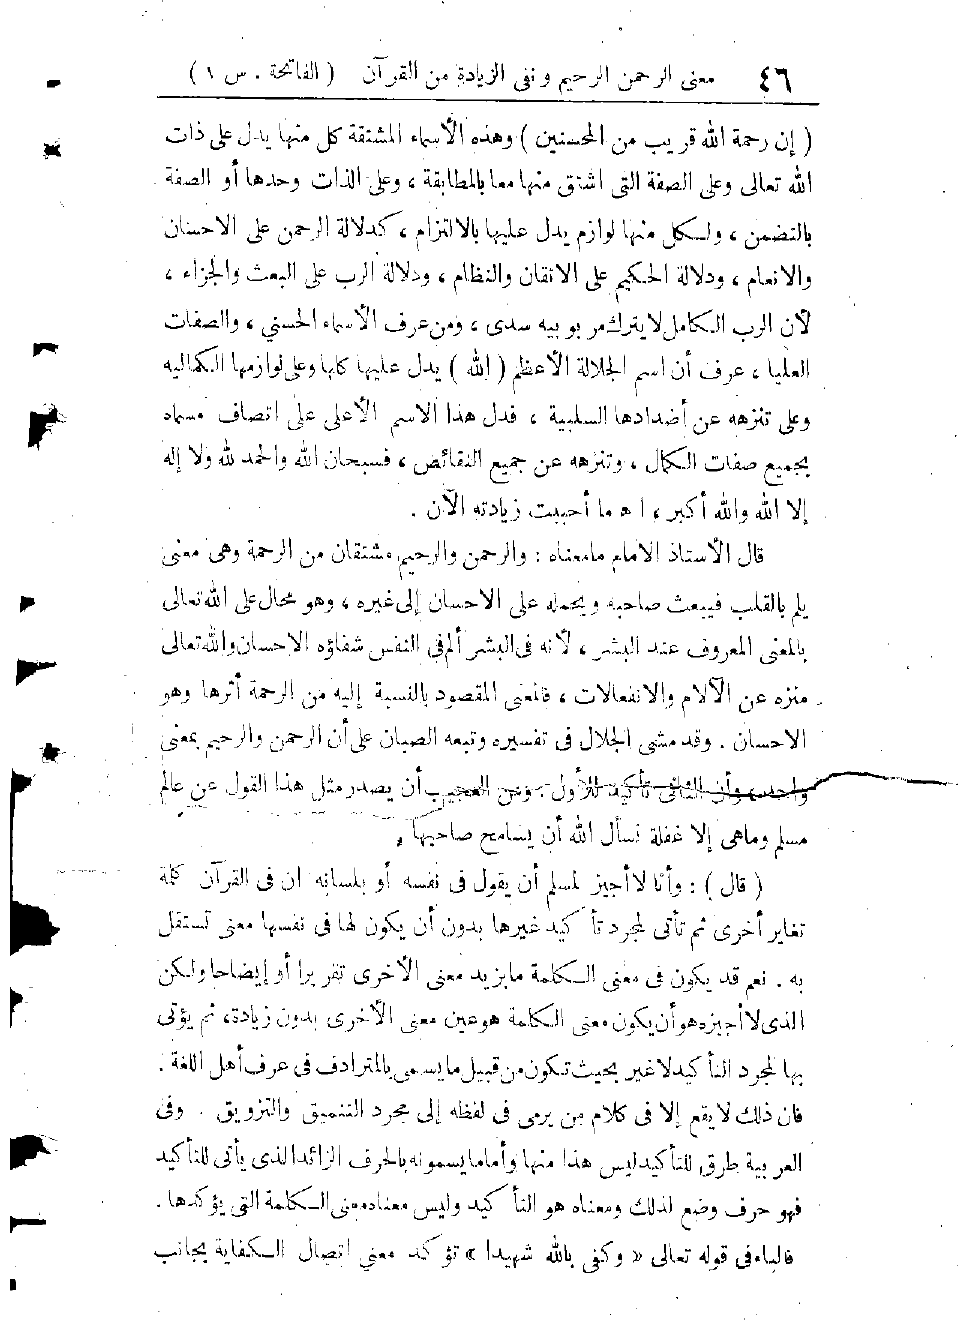 ٤٦ معنى الرحمن الرحيم ونفى الزيادة من القرآن ( الفاتحة . س ١ )
( إن رحمة الله قريب من المحسنين ) وهذه الأسماء المشتقة كل منها يدل على ذات
الله تعالى وعلى الصفة التى اشتق منها معا بالمطابقة ، وعلى الذات وحدها أو الصفة
بالتضمن ، ولكل منها لوازم يدل عليها بالالتزام ، كدلالة الرحمن على الاحسان
والانعام ، ودلالة الحكيم على الاتقان والنظام ، ودلالة الرب على البعث والجزاء ،
لأن الرب الكامل لا يترك مربوبيه سدى ، ومن عرف الأسماء الحسنى ، والصفات
العليا ، عرف أن اسم الجلالة الأعظم ( الله ) يدل عليها كلها وعلى لوازمها الكمالية
وعلى تنزهه عن أضدادها السلبية ، فدل هذا الاسم الأعلى على اتصاف مسماه
بجميع صفات الكمال ، وتنزهه عن جميع النقائص ، فسبحان الله والحمد لله ولا إله
إلا الله والله أكبر ، اه ما أحببت زيادته الآن .
قال الأستاذ الامام مامعناه : والرحمن والرحيم مشتقان من الرحمة وهى معنى
يلم بالقلب فيبعث صاحبه ويحمله على الاحسان إلى غيره ، وهو محال على الله تعالى
بالمعنى المعروف عند البشر ، لأنه فى البشر ألم فى النفس شفاؤه الاحسان والله تعالى
منزه عن الآلام والانفعالات ، فالمعنى المقصود بالنسبة إليه من الرحمة أثرها وهو
الاحسان . وقد مشى الجلال فى تفسيره وتبعه الصبان على أن الرحمن والرحيم بمعنى
واحد ، وأن الثانى تأكيد للأول . ومن العجيب أن يصدر مثل هذا القول عن عالم
مسلم وماهى إلا غفلة نسأل الله أن يسامح صاحبها .
( قال ) : وأنا لا أجيز لمسلم أن يقول فى نفسه أو بلسانه ان فى القرآن كلمة
تغاير أخرى ثم تأتى لمجرد تأكيد غيرها بدون أن يكون لها فى نفسها معنى تستقل
به . نعم قد يكون فى معنى الكلمة مايزيد معنى الأخرى تقريرا أو إيضاحا ولكن
الذى لا أجيزه هو أن يكون معنى الكلمة هو عين معنى الأخرى بدون زيادة ، ثم يؤتى
بها لمجرد التأكيد لا غير بحيث تكون من قبيل ما يسمى بالمترادف فى عرف أهل اللغة .
فان ذلك لا يقع إلا فى كلام من يرمى فى لفظه إلى مجرد التنميق والتزويق . وفى
العربية طرق للتأكيد ليس هذا منها وأما ما يسمونه بالحرف الزائد الذى يأتى للتأكيد
فهو حرف وضع لذلك ومعناه هو التأكيد وليس معناه معنى الكلمة التى يؤكدها .
فالباء فى قوله تعالى « وكفى بالله شهيدا » تؤكد معنى اتصال الكفاية بجانب